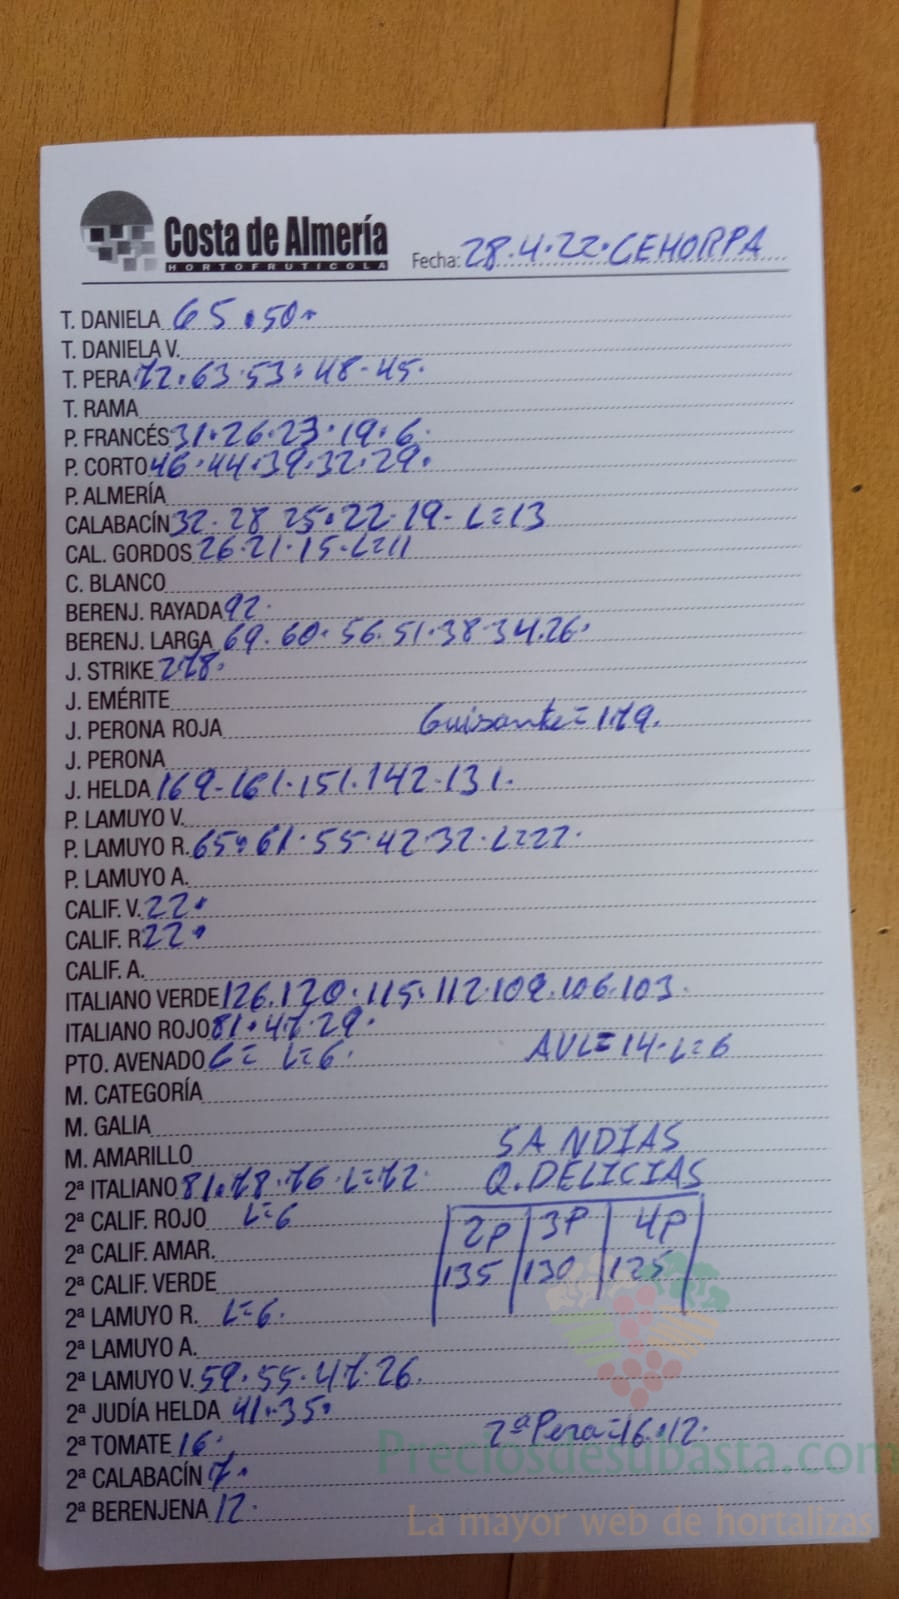 Costa de Almería
HORTOFRUTICOLA
Fecha: 28.4.22. CEHORPA
T. DANIELA 65.50.
T. DANIELA V.
T. PERA 72.63.53.48-45.
T. RAMA
P. FRANCÉS 31.26.23.19.6.
P. CORTO 46.44.39.32.29.
P. ALMERÍA
CALABACÍN 32.28 25.22.19-L=13
CAL. GORDOS 26.21.15-L=11
C. BLANCO
BERENJ. RAYADA 92.
BERENJ. LARGA 69.60.56.51.38.34.26.
J. STRIKE 278.
J. EMÉRITE
J. PERONA ROJA Guisante=179.
J. PERONA
J. HELDA 169-161.151.142.131.
P. LAMUYO V.
P. LAMUYO R. 65.61.55.42.32.L=22.
P. LAMUYO A.
CALIF. V. 22.
CALIF. R 22.
CALIF. A.
ITALIANO VERDE 126.120.115.112.109.106.103.
ITALIANO ROJO 81.47.29.
PTO. AVENADO G= L=6. AVL=14-L=6
M. CATEGORÍA
M. GALIA
M. AMARILLO SANDIAS
2ª ITALIANO 81.78.76-L=72. Q.DELICIAS
2ª CALIF. ROJO L=6 2P 3P 4P
2ª CALIF. AMAR. 135 130 125
2ª CALIF. VERDE
2ª LAMUYO R. L=6.
2ª LAMUYO A.
2ª LAMUYO V. 59.55.47.26.
2ª JUDÍA HELDA 41.35.
2ª TOMATE 16. 2ª Pera=16.12.
Preciosdesubasta.com
2ª CALABACÍN 7.
2ª BERENJENA 12.
La mayor web de hortalizas